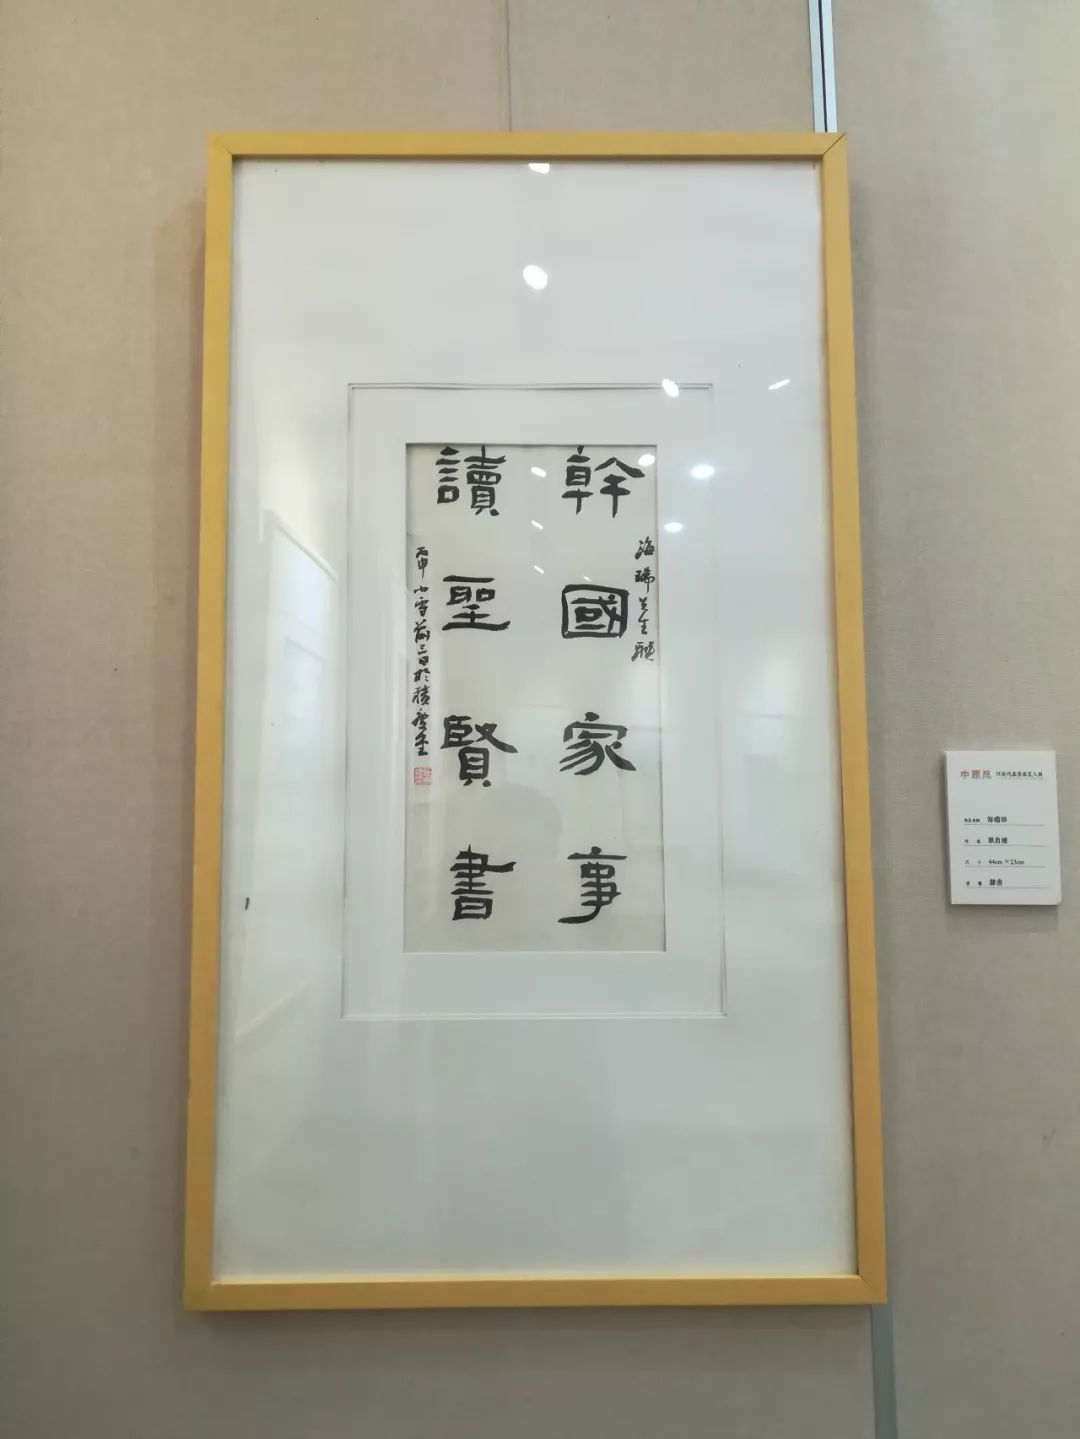 幹國家事
海瑞先生聯
讀聖賢書
丙申小雪前三日於積慶堂
中原风 河南代表书家五人展
作品名称 海瑞联
作 者
尺 寸 44cm×23cm
隶书